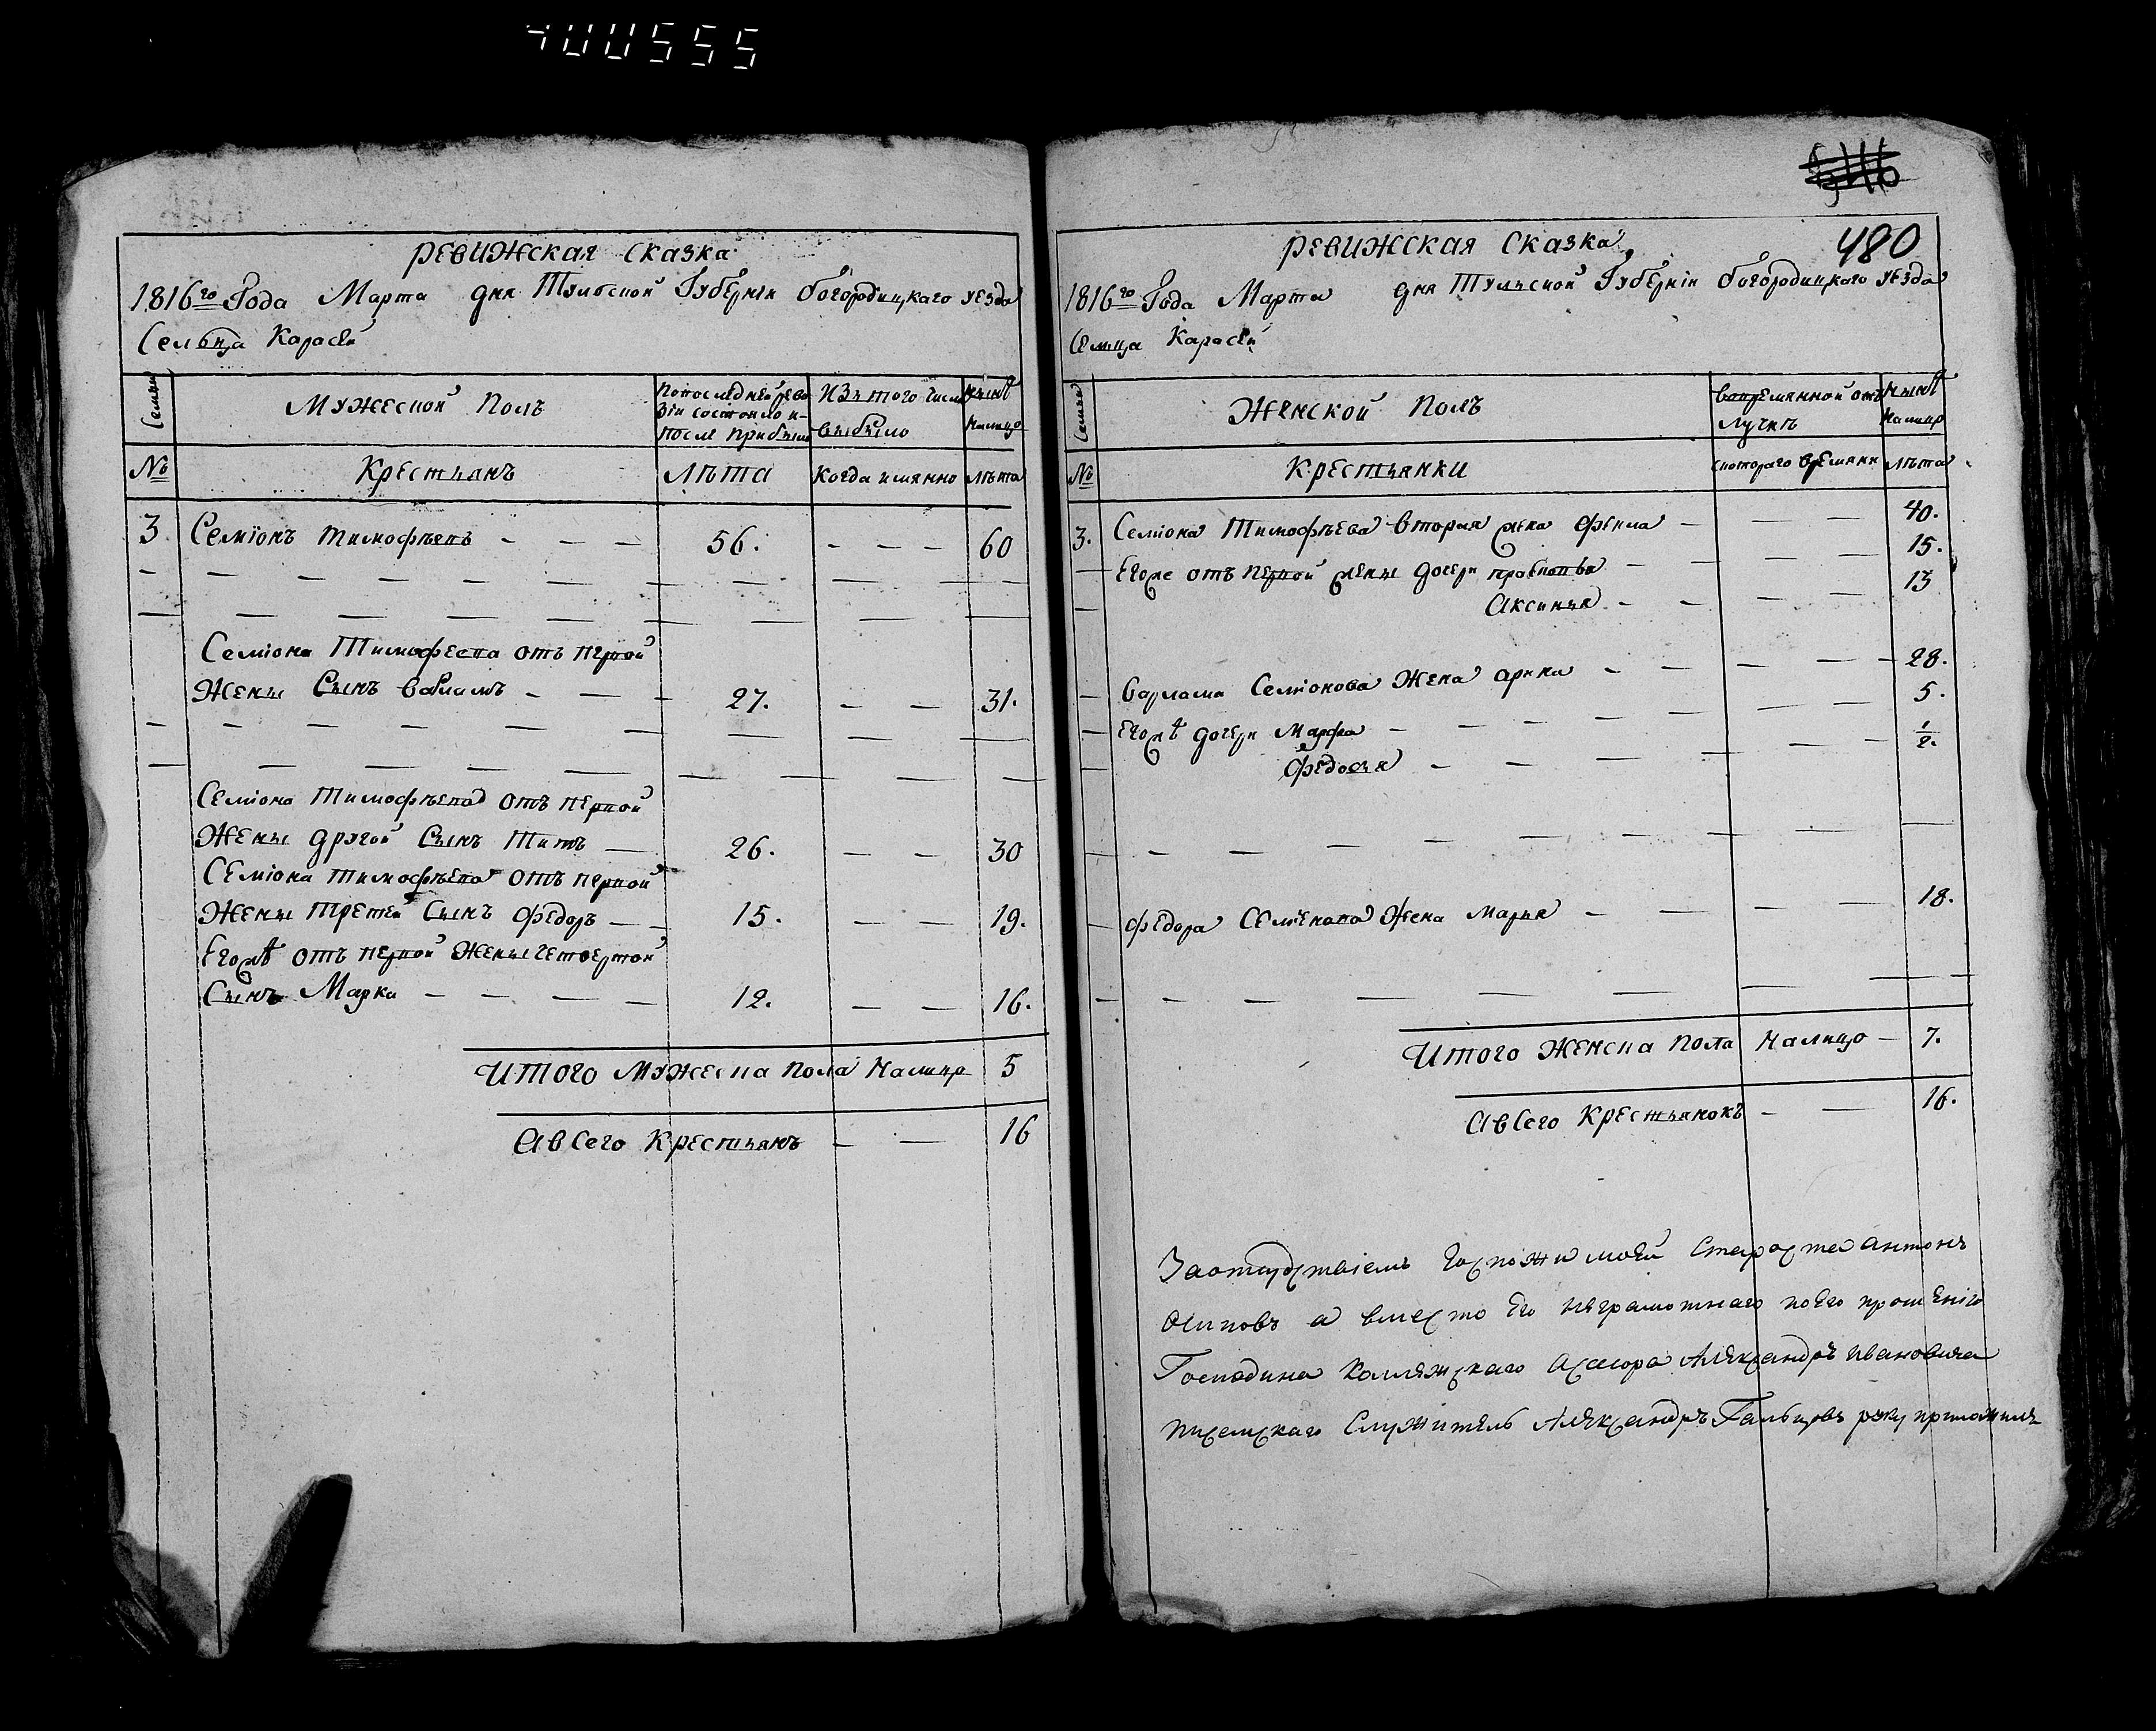 400555
ревижская сказка
1816го Года Марта дня Тульской Губернiи богородицкаго уезда
Сельца Карасей
Семьи
Мужеской Полъ
Попоследней реви
зiи состояло и
после прибыло
изъ того числа
выбыло
ныне
налицо
№
Крестьянъ
лѣта
когда имянно
лѣта
3 Семiонъ тимофѣевъ — — — 56. — — — 60
Семiона Тимофеева отъ первой
Жены Сынъ Варламъ — — — 27. — — 31.
Семiона тимофѣева отъ первой
Жены другой Сынъ Титъ — 26. — — 30
Семiона тимофѣева отъ первой
Жены третей Сынъ федоръ — — 15. — — 19.
Егожъ отъ первой Жены четвертой
Сынъ Марки — — — — 12. — — 16.
итого мужеска пола налицо 5
Авсего крестьянъ — — 16
546
480
ревижская сказка
1816го Года Марта дня Тульской Губернiи богородицкаго уезда
Сельца Карасей
Семьи
Женской Полъ
вовремянной отъ
лучкѣ
ныне
налицо
№
Крестьянки
скотораго времяни
лѣта
3. Семiона Тимофѣева вторая жена фекла — — — 40.
Егоже отъ первой жены дочери прасковья — — — — 15.
Аксинья — — — — 13
Варлама Семiонова Жена арина — — — — — 28.
Егожъ дочери Марфа — — — — — 5.
федосья — — — — — 1/2.
федора Семiенова Жена марья — — — — 18.
итого женска пола налицо — 7.
Авсего крестьянокъ — — 16.
Заотсудствiемъ Госпожи моей Староста антонъ
Осиповъ а вместо его неграмотнаго поего прошенiю
Господина Коллежскаго Асесора Александръ ивановича
Писемскаго Служитель Александръ Гальцовъ руку приложилъ